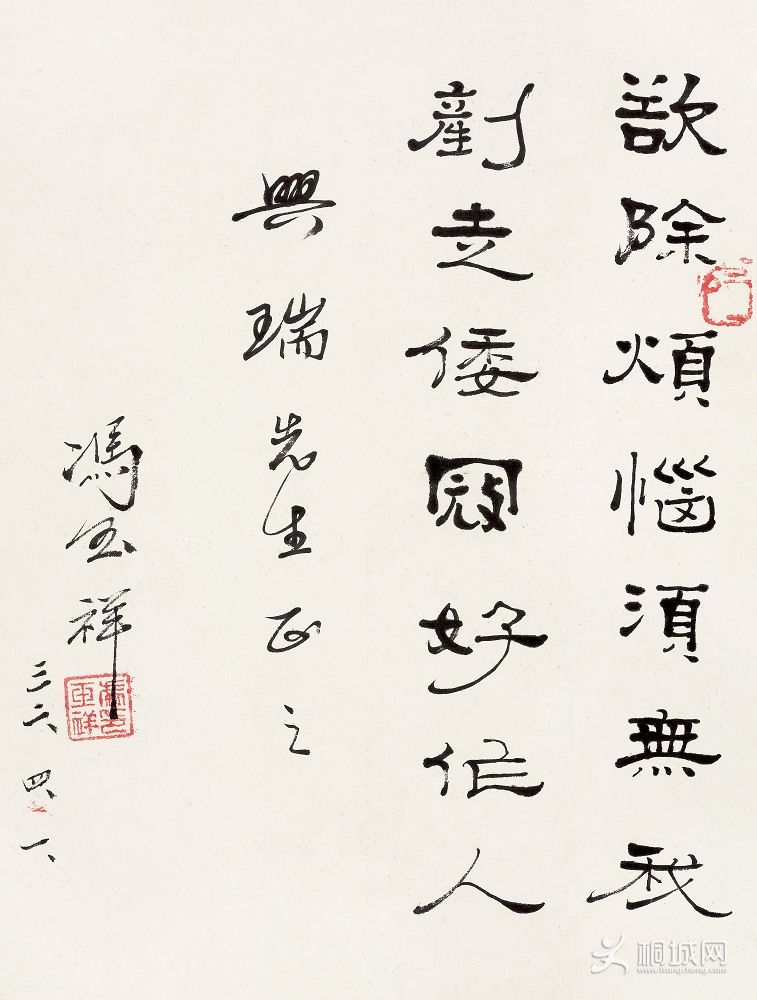 欲除煩惱須無我
剷走倭寇好作人
興瑞先生正之
馮玉祥
三六、四、一、
桐城网
www.itongcheng.com